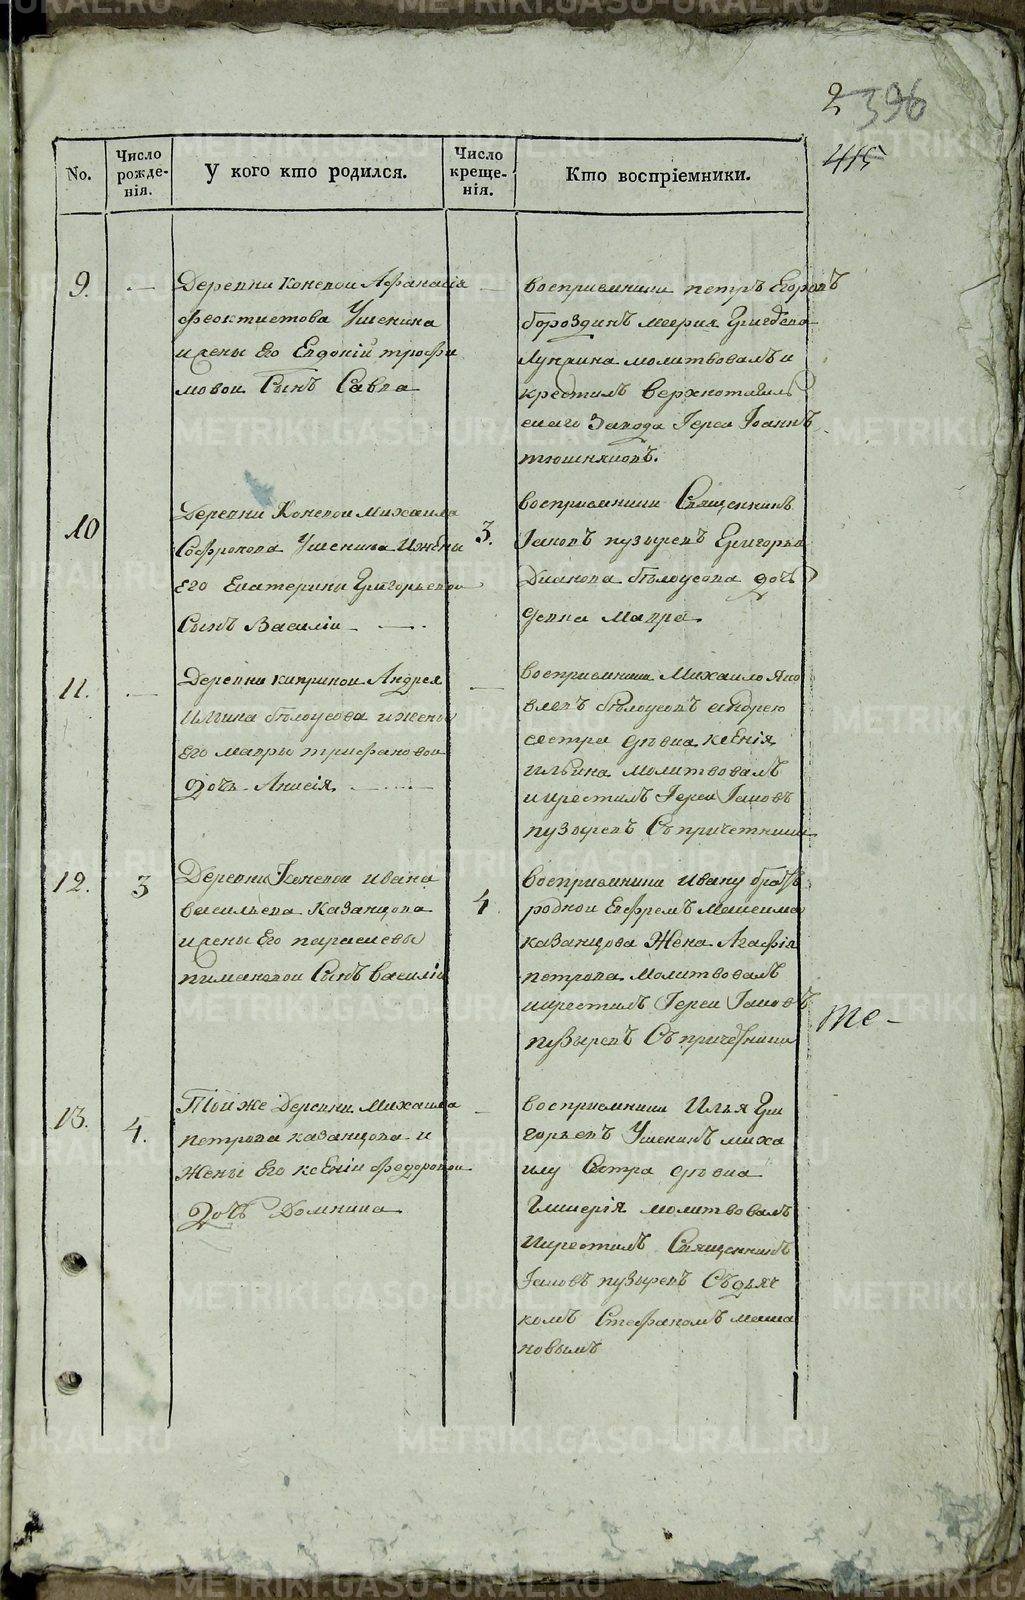 2 396
415
No.
Число рожде-нія.
У кого кто родился.
Число креще-нія.
Кто воспріемники.
9.
Деревни Коневой Афанасія
Феоктистова Ушенина
и жены Его Евдокіи трофи
мовой Сынъ Савва
воспріемники петръ Егоровъ
бороздинъ
Лукина молитвовалъ и
крестилъ Верхнотагиль
скаго Завода Іерей Іоаннъ
тюшняковъ.
10
Деревни Коневой Михаила
Софронова Ушенина И жены
его Екатерины Григорьевой
Сынъ Василій
3.
воспріемники Священникъ
Іаковъ пузыревъ Григорья
Бѣлоусова дочь
девка Мавра.
11.
Деревни киприной Андрея
Ильина бѣлоусова и жены
его мавры трифановой
дочь Анисія.
воспріемники Михайло Яко
влевъ бѣлоусовъ андрею
сестра дѣвка ксенія
ильина молитвовалъ
и крестилъ Іерей Іаковъ
пузыревъ Съ причетники
12.
3
Деревни Коневой ивана
васильева Казанцова
и жены Его параскевы
пимановой Сынъ василій
4
воспріемники ивану братъ
родной Ефремъ Максима
казанцова Жена Агафія
петрова молитвовалъ
и крестилъ Іерей Іаковъ
пузыревъ Съ причетники
те-
13.
4.
Той же Деревни Михаила
петрова казанцова и
Жены Его ксеніи федоровой
Дочь Домника
воспріемники Илья Гри
горьевъ Ушенинъ миха
илу Сестра дѣвка
Гликерія молитвовалъ
и крестилъ Священникъ
Іаковъ пузыревъ Съ дьяч
комъ Стефаномъ
новымъ
METRIKI.GASO-URAL.RU